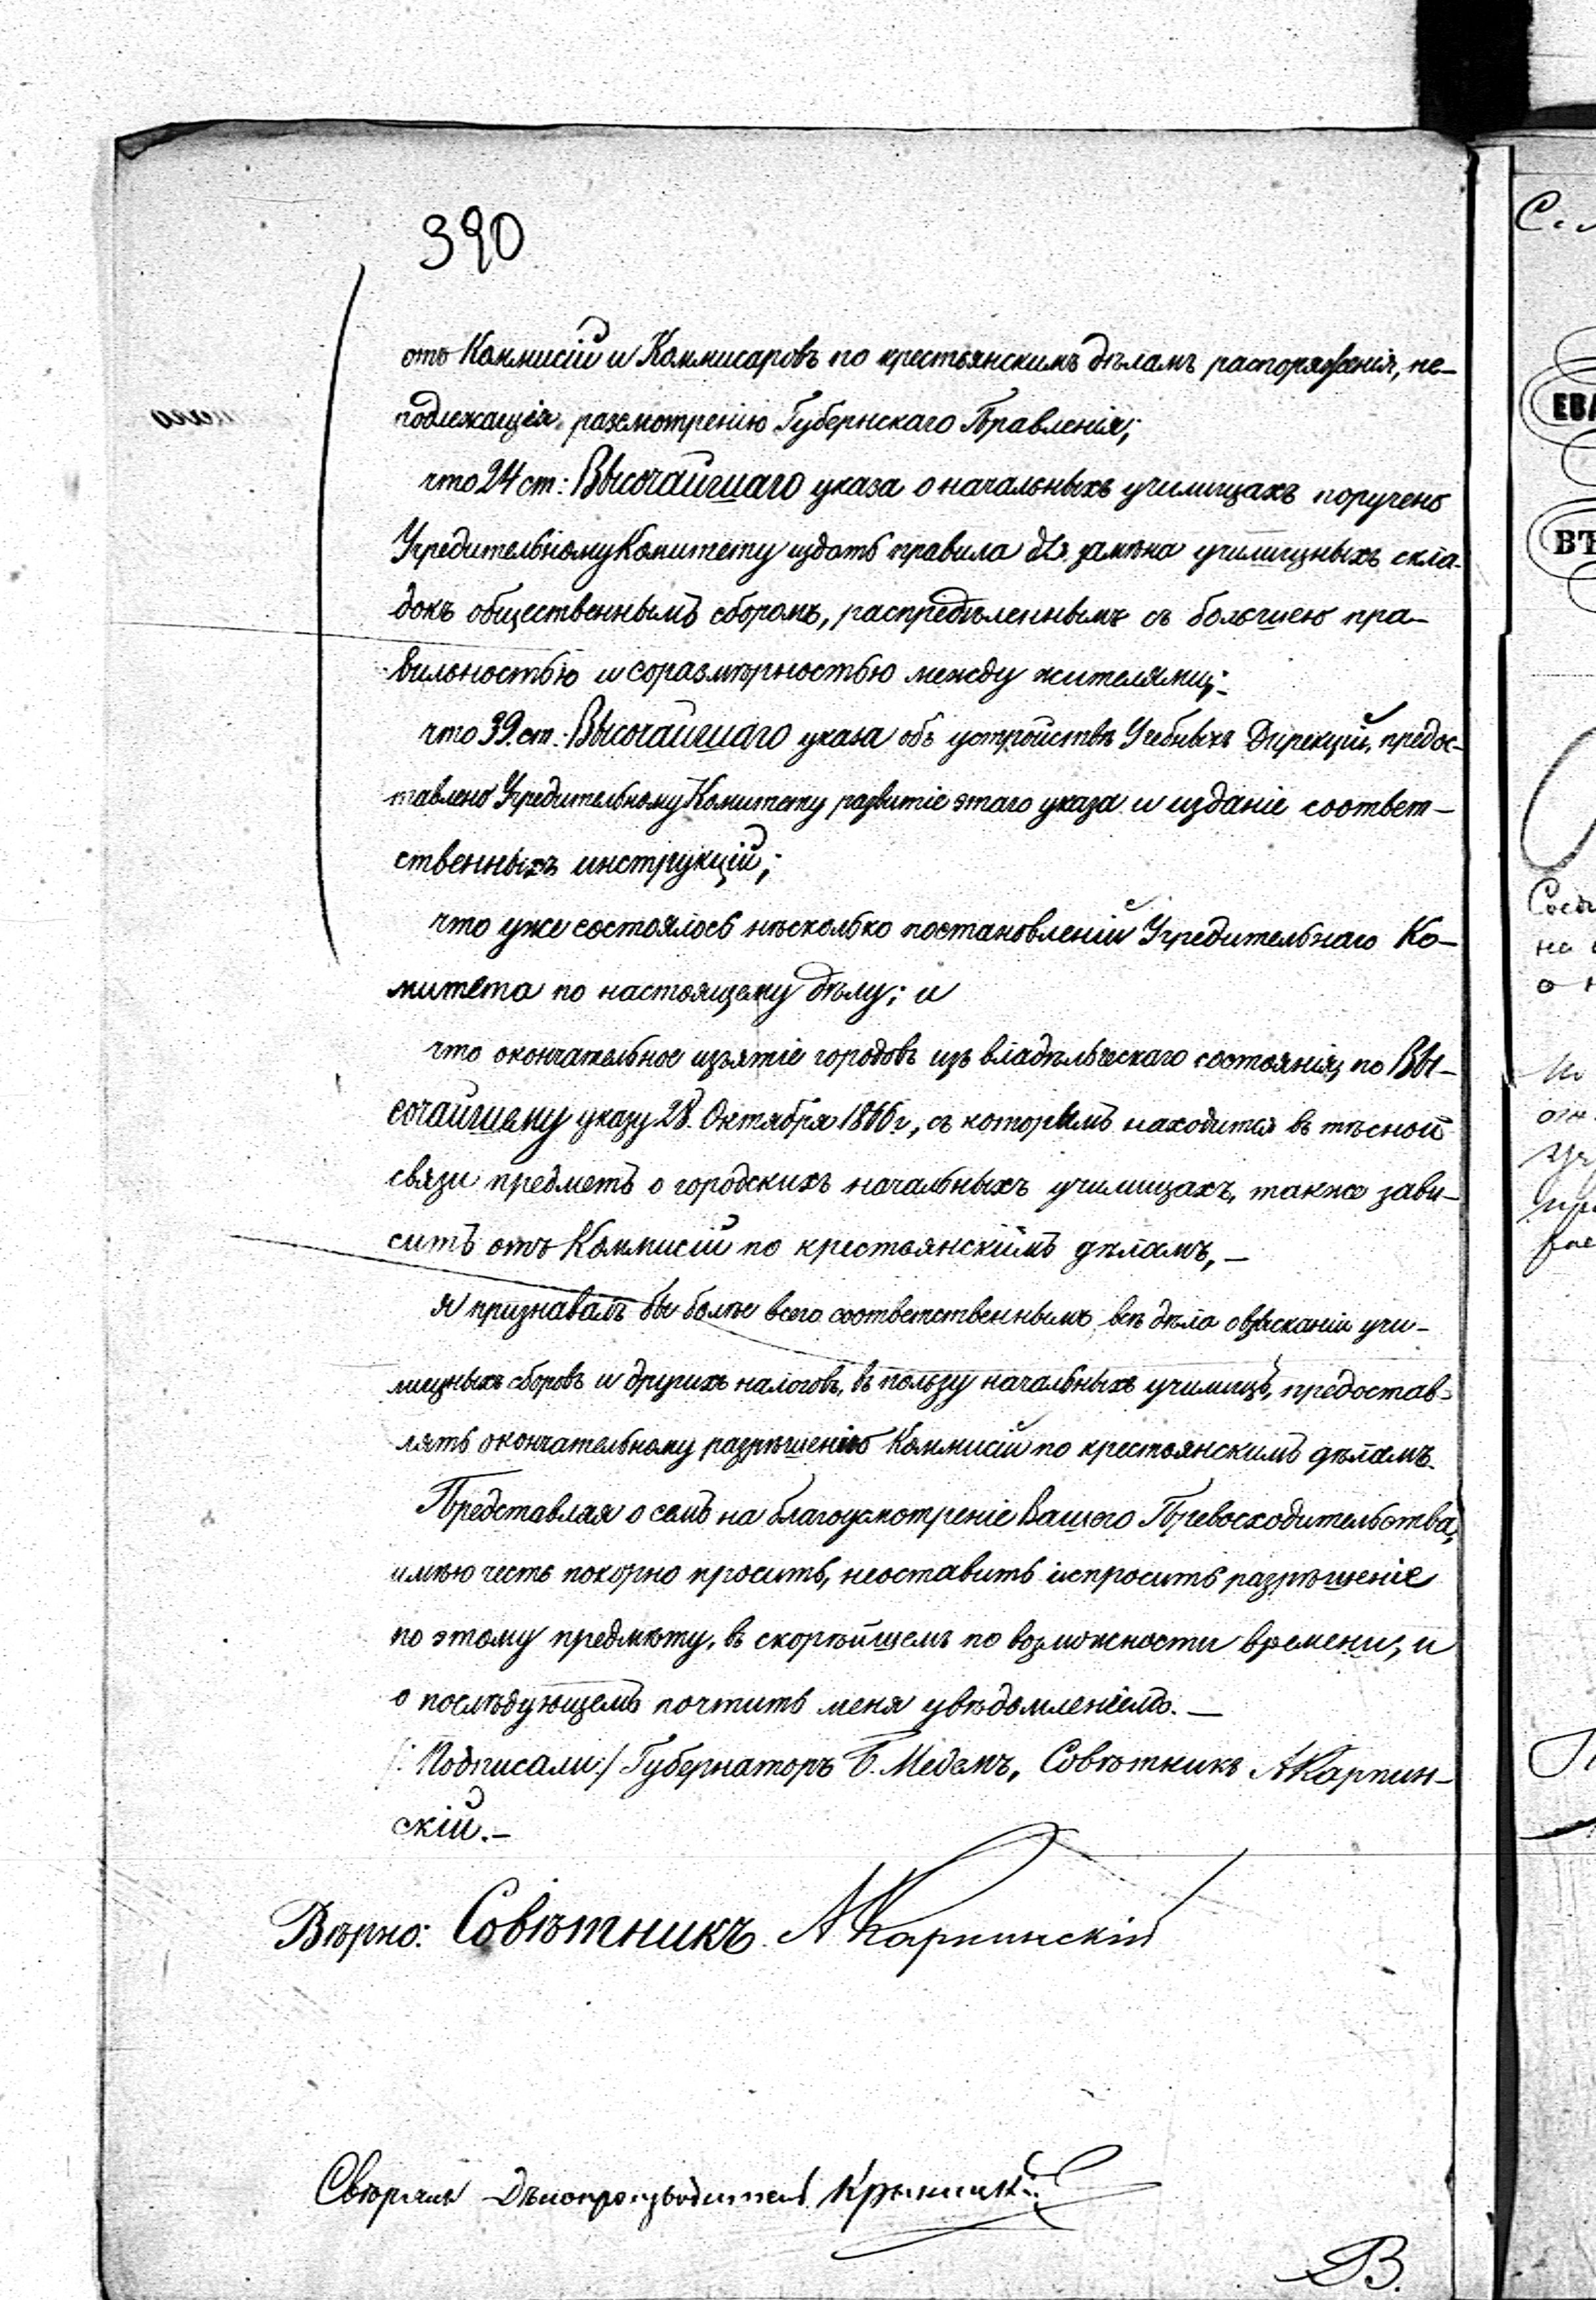 390
отъ Коммисій и Коммисаровъ по крестьянскимъ дѣламъ распоряженія, не-
подлежащія разсмотрѣнію Губернскаго Правленія;
что 24 ст: Высочайшаго указа о начальныхъ училищахъ поручено
Учредительному Комитету издать правила для замѣна училищныхъ скла-
докъ общественнымъ сборомъ, распредѣленнымъ съ большею пра-
вильностью и соразмѣрностью между жителями;
что 39. ст. Высочайшаго указа объ устройствѣ Учебныхъ Дирекцій, предос-
тавлено Учредительному Комитету развитіе этаго указа и изданіе соответ-
ственныхъ инструкцій;
что уже состоялось нѣсколько постановленій Учредительнаго Ко-
митета по настоящему дѣлу; и
что окончательное изъятіе городовъ изъ владѣльческаго состоянія, по Вы-
сочайшему указу 28. Октября 1866 г, съ которымъ находится въ тѣсной
связи предметъ о городскихъ начальныхъ училищахъ, также зави-
ситъ отъ Коммисій по крестьянскимъ дѣламъ, —
я признавалъ бы болѣе всего соответственнымъ всѣ дѣла о взысканіи учи-
лищныхъ сборовъ и другихъ налоговъ, въ пользу начальныхъ училищъ, предостав-
лять окончательному разрѣшенію Коммисій по крестьянскимъ дѣламъ.
Представляя о семъ на благоусмотреніе Вашего Превосходительства,
имѣю честь покорно просить, неоставить испросить разрѣшеніе
по этому предмѣту, въ скорѣйшемъ по возможности времени, и
о послѣдующемъ почтить меня увѣдомленіемъ. —
/: Подписали:/ Губернаторъ Б. Медемъ, Совѣтникъ А Карпин-
скій. —
Вѣрно: Совѣтникъ А Карпинскій
Свѣрялъ Дѣлопроизводитель
В.